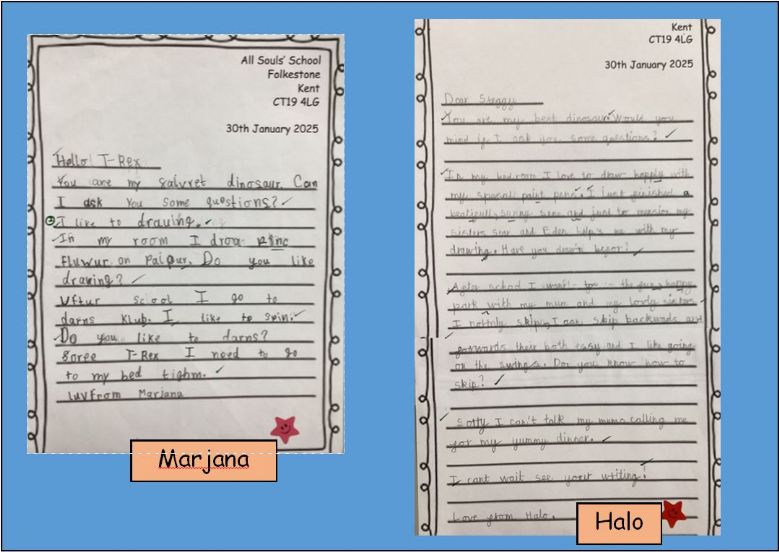 All Souls' School
Folkestone
Kent
CT19 4LG
30th January 2025
Hello T-Rex
You are my faivret dinosaur. Can
I ask you some questions?
I like to drawing.
In my room I drow pinc
fluwur on paipur. Do you like
drawing?
Uftur scool I go to
darns klub. I like to spin.
Do you like to darns?
Soree T-Rex I need to go
to my bed tighm.
luvfrom Marjana
Marjana
Kent
CT19 4LG
30th January 2025
Dear Steggy
You are my best dinosaur. Would you
mind if I ask you some questions?
In my bedroom I love to draw happly with
my speshal paint pens. I just finished a
sunny and just to mesion my
sisters and Eden help's me with my
drawing. Have you drawn before?
After school I went to the happy
park with my mum and my lovely sisters
I skip. I can skip backwards and
forwards their both easy and I like going
on the swings. Do you know how to
skip?
Sorry I can't talk my mums calling me
for my yummy dinner.
I cant wait see your writing!
Love from Halo.
Halo